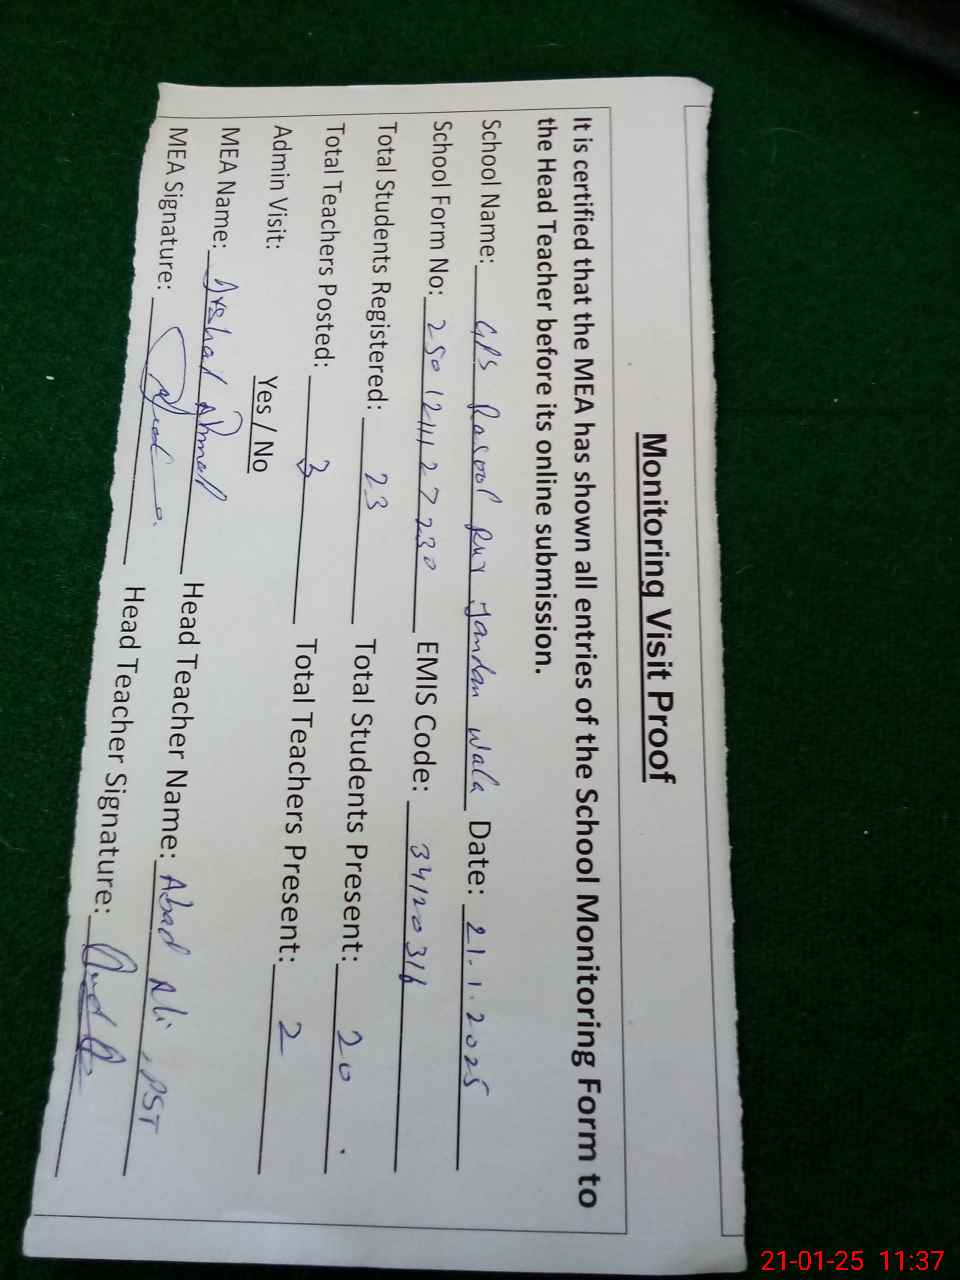 Monitoring Visit Proof
It is certified that the MEA has shown all entries of the School Monitoring Form to
the Head Teacher before its online submission.
School Name: GPS Rasool Pur Jandan Wala Date: 21.1.2025
School Form No: 2501211127230 EMIS Code: 34120316
Total Students Registered: 23 Total Students Present: 20
Total Teachers Posted: 3 Total Teachers Present: 2
Admin Visit: Yes / No
MEA Name: Arshad Ahmad Head Teacher Name: Abad Ali, PST
MEA Signature: Head Teacher Signature:
21-01-25 11:37